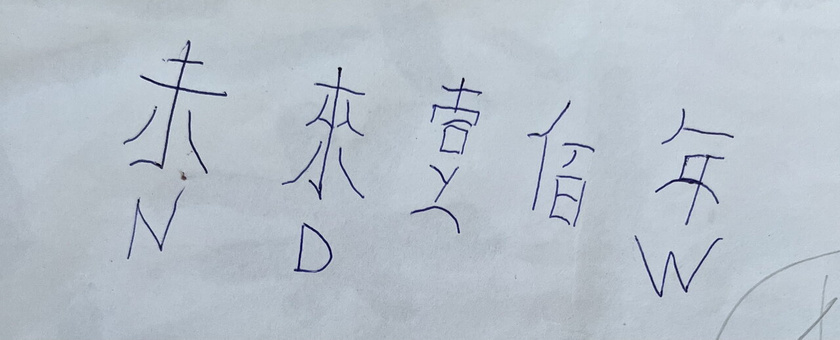 未來壹佰年
N D W